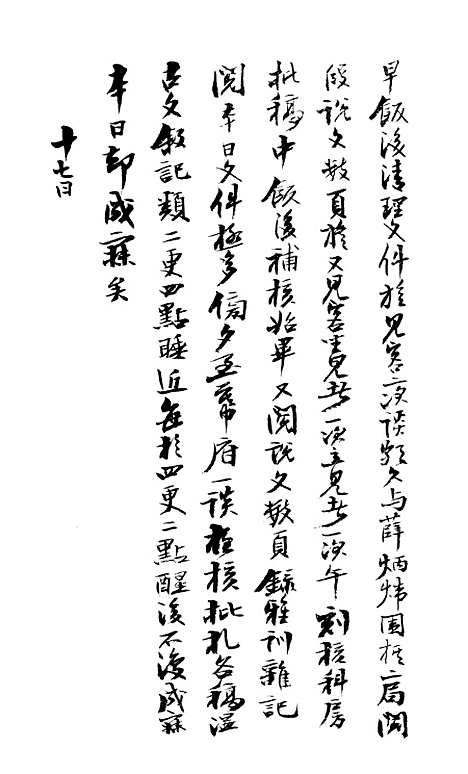 早飯後清理文件旋見客二次談頗久与薛炳煒圍棋二局閱
段說文數頁旋又見客坐見者一次立見者一次午刻核科房
批稿中飯後補核始畢又閱說文數頁錄雅訓雜記
閱本日文件極多傍夕至幕府一談夜核批札各稿溫
古文敘記類二更四點睡近每於四更二點醒後不復成寐
本日却成寐矣
十七日